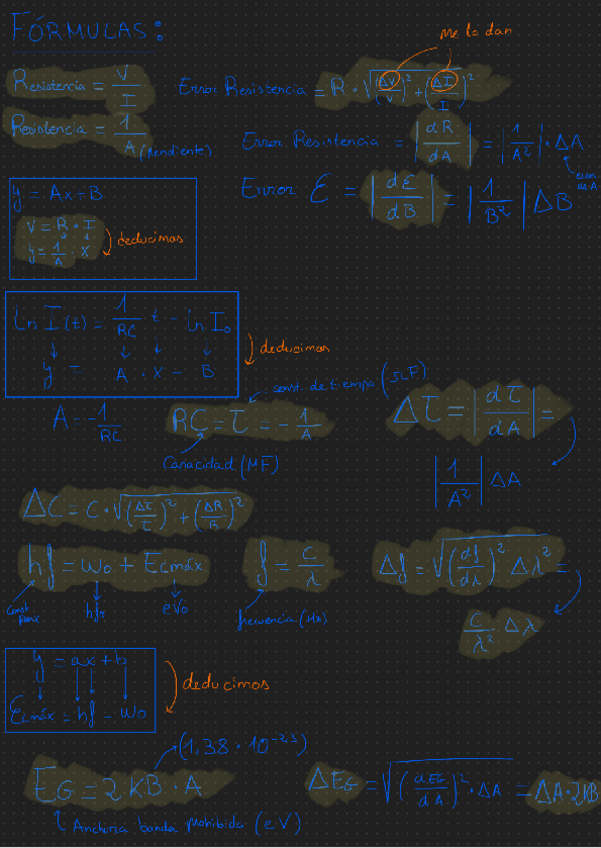 FÓRMULAS:
me lo dan
Resistencia = V/I
Error Resistencia = R · √((ΔV/V)² + (ΔI/I)²)
Resistencia = 1/A (pendiente)
Error Resistencia = |dR/dA| = |1/A²| · ΔA
error de A
Error ε = |dε/dB| = |1/B²| ΔB
y = Ax + B
V = R · I
y = 1/A · x
deducimos
Ln I(t) = 1/RC t - ln I₀
y = A · x - B
deducimos
const. de tiempo (-ΩF)
A = -1/RC
RC = τ = -1/A
Δτ = |dτ/dA| =
Capacidad (MF)
|1/A²| ΔA
ΔC = C · √((Δτ/τ)² + (ΔR/R)²)
hf = W₀ + Ecmáx
f = C/λ
Δf = √((df/dλ)² Δλ² =
hf₀
eV₀
frecuencia (Hz)
C/λ² Δλ
y = ax + b
Ecmáx = hf - W₀
deducimos
(1,38 · 10⁻²³)
EG = 2 KB · A
ΔEG = √((dEG/dA)² · ΔA = ΔA · 2KB
Anchura banda prohibida (eV)